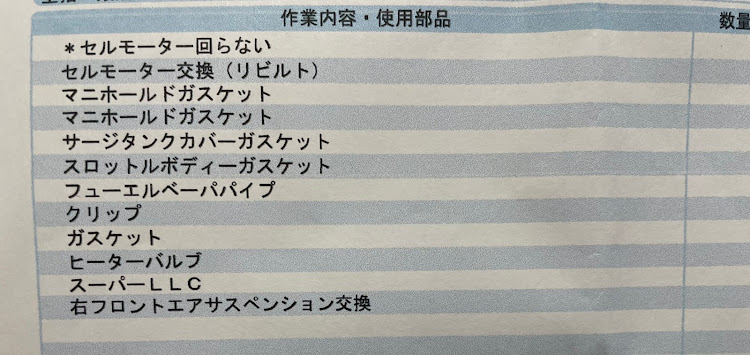 作業内容・使用部品
数量
＊セルモーター回らない
セルモーター交換（リビルト）
マニホールドガスケット
マニホールドガスケット
サージタンクカバーガスケット
スロットルボディーガスケット
フューエルベーパパイプ
クリップ
ガスケット
ヒーターバルブ
スーパーＬＬＣ
右フロントエアサスペンション交換